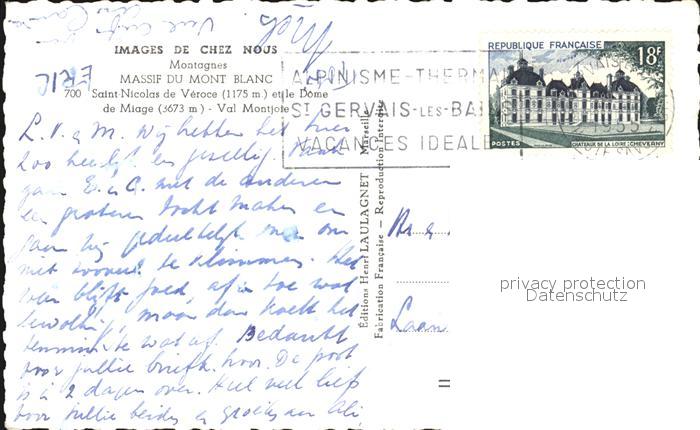 IMAGES DE CHEZ NOUS
Montagnes
MASSIF DU MONT BLANC
700 Saint-Nicolas de Véroce (1175 m.) et le Dôme
de Miage (3673 m) - Val Montjoie
ERIC
ALPINISME-THERMA
ST GERVAIS-LES-BAI
VACANCES IDEALE
REPUBLIQUE FRANÇAISE
18F
POSTES
CHATEAUX DE LA LOIRE: CHEVERNY
L. V. & M. Wij hebben het hier
zoo heerlijk en gezellig.
gaan E. & C. met de anderen
een grotere tocht maken en
gaan wij gedeeltelijk mee om
niet zooveel te klimmen. Het
weer blijft goed, af en toe wat
bewolkt, maar dan koelt het
tenminste wat af. Bedankt
voor jullie brief hoor. De post
is in 2 dagen over. Heel veel liefs
voor jullie beiden en groeten aan
Editions Henri LAULAGNET - Marseille
Fabrication Française - Reproduction Interdite
Laan
privacy protection
Datenschutz